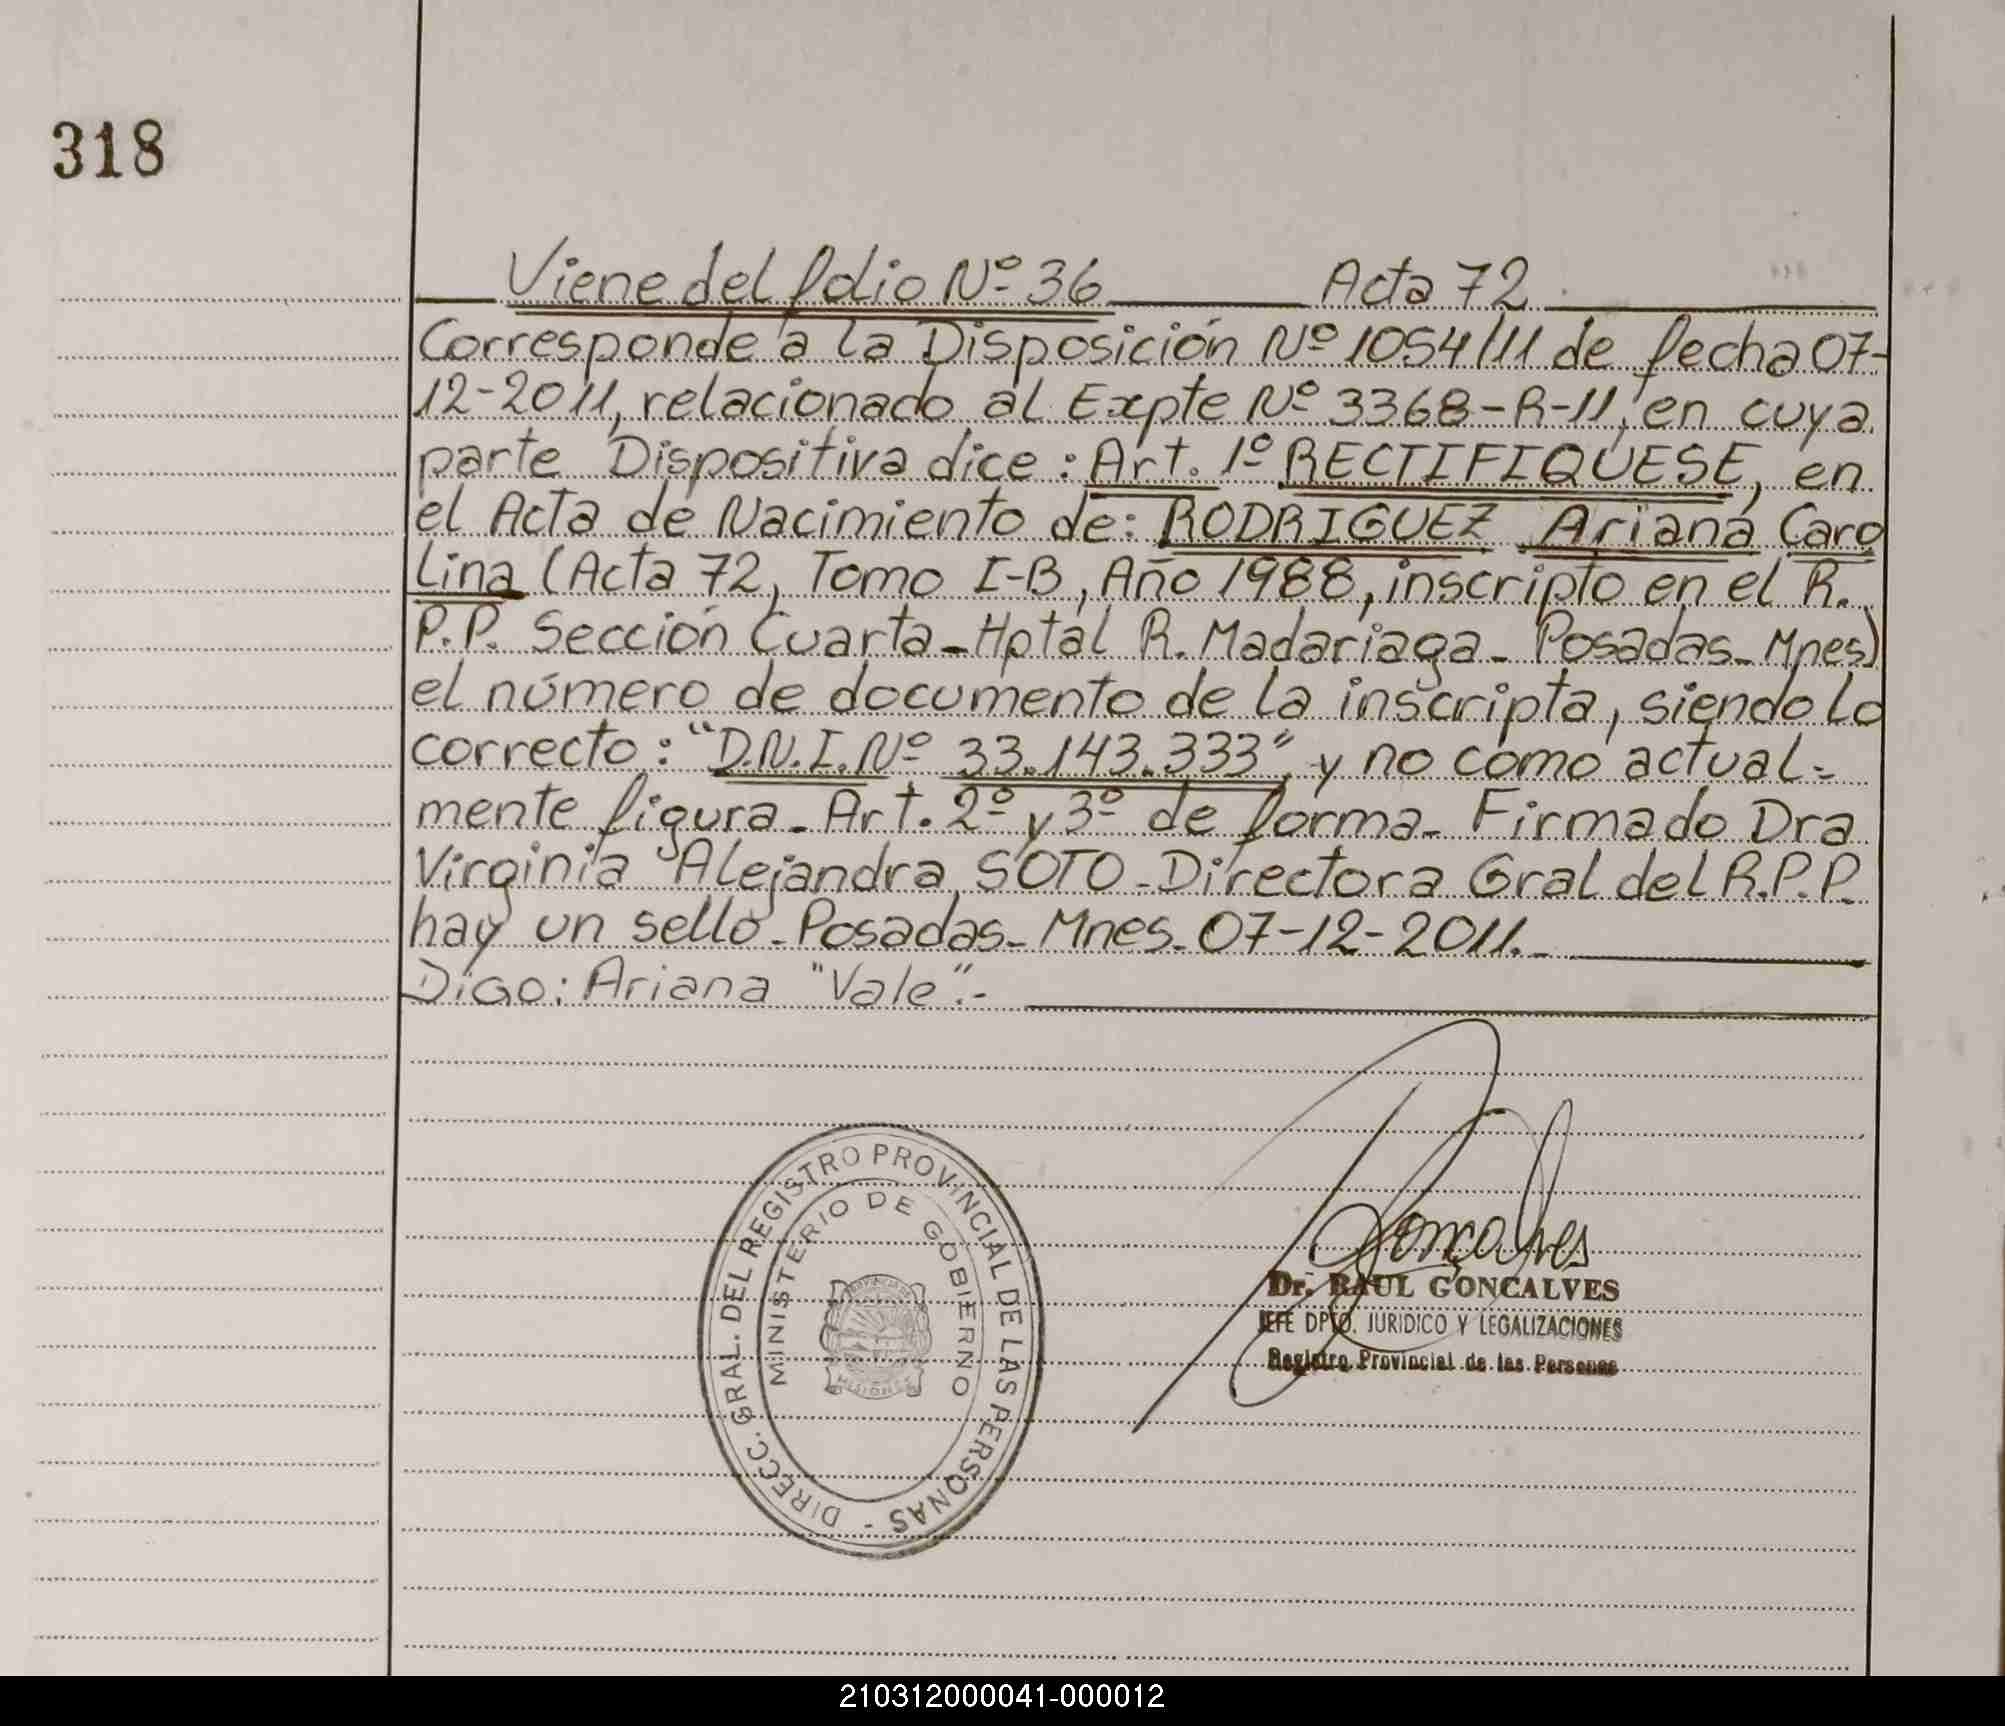 318
Viene del folio Nº 36 Acta 72
Corresponde a la Disposición Nº 1054/11 de fecha 07-
12-2011, relacionado al Expte Nº 3368-R-11, en cuya
parte Dispositiva dice: Art. 1º RECTIFIQUESE, en
el Acta de Nacimiento de: RODRIGUEZ Ariana Caro
lina (Acta 72, Tomo I-B, Año 1988, inscripto en el R.
P.P. Sección Cuarta-Hptal R. Madariaga- Posadas-Mnes)
el número de documento de la inscripta, siendo lo
correcto: "D.N.I. Nº 33.143.333", y no como actual-
mente figura-Art. 2º y 3º de forma- Firmado Dra
Virginia Alejandra SOTO-Directora Gral del R.P.P.
hay un sello-Posadas-Mnes-07-12-2011.-
Digo: Ariana "Vale".-
DIRECC. GRAL. DEL REGISTRO PROVINCIAL DE LAS PERSONAS -
MINISTERIO DE GOBIERNO
MISIONES
Goncalves
Dr. RAUL GONCALVES
JEFE DPTO. JURIDICO Y LEGALIZACIONES
Registro Provincial de las Personas
210312000041-000012